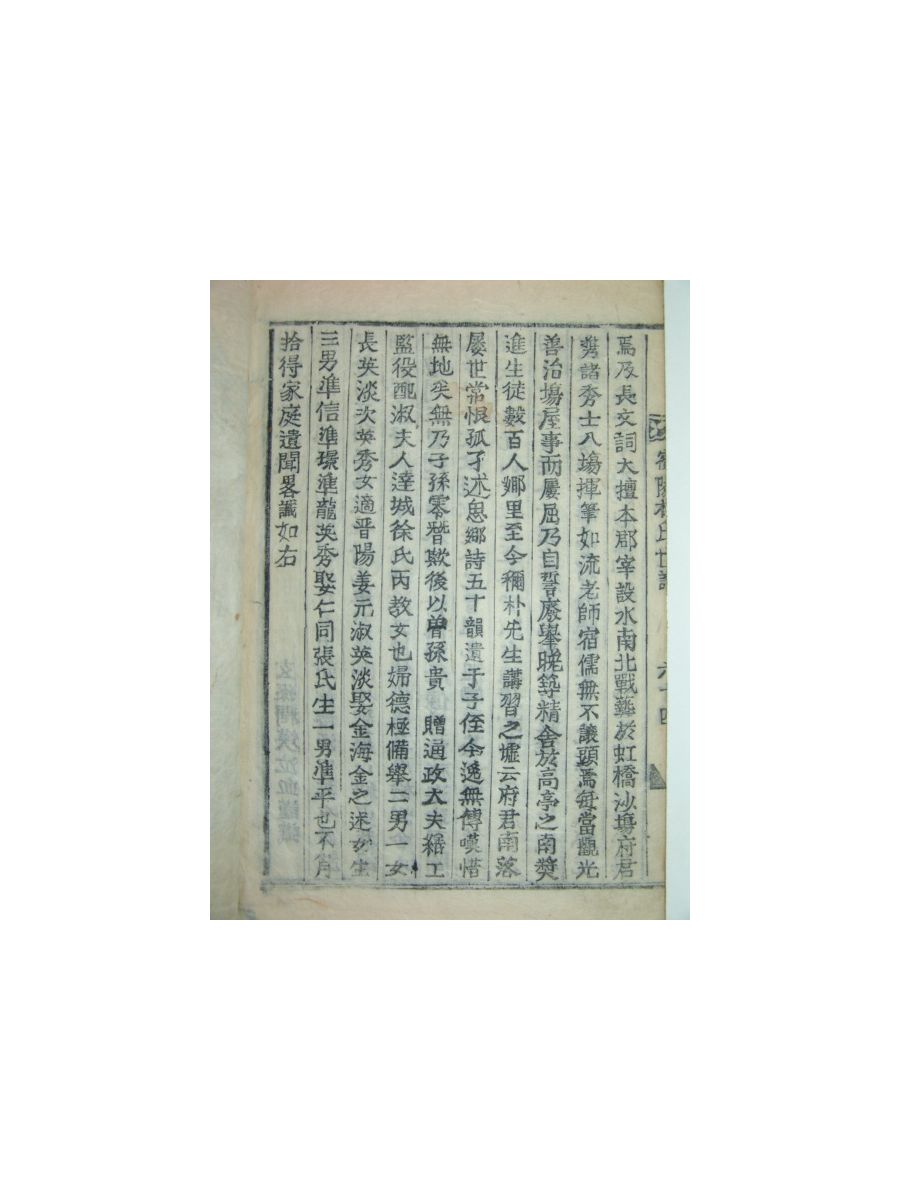 密陽朴氏世譜 六十四
焉及長文詞大擅本郡宰設水南北戰藝於虹橋沙場府君
携諸秀士入場揮筆如流老師宿儒無不讓頭焉每當觀光
善治場屋事而屢屈乃自誓廢擧晩筑精舍於高亭之南奬
進生徒數百人鄕里至今稱朴先生講習之墟云府君南落
屢世常恨孤孑述思鄕詩五十韻遺于子侄今逸無傳嘆惜
無地矣無乃子孫零替欺後以曾孫貴 贈通政大夫繕工
監役配淑夫人達城徐氏丙敎女也婦德極備擧二男一女
長英淡次英秀女適晋陽姜元淑英淡娶金海金之述女生
三男準信準璟準龍英秀娶仁同張氏生一男準平也不肖
拾得家庭遺聞畧識如右